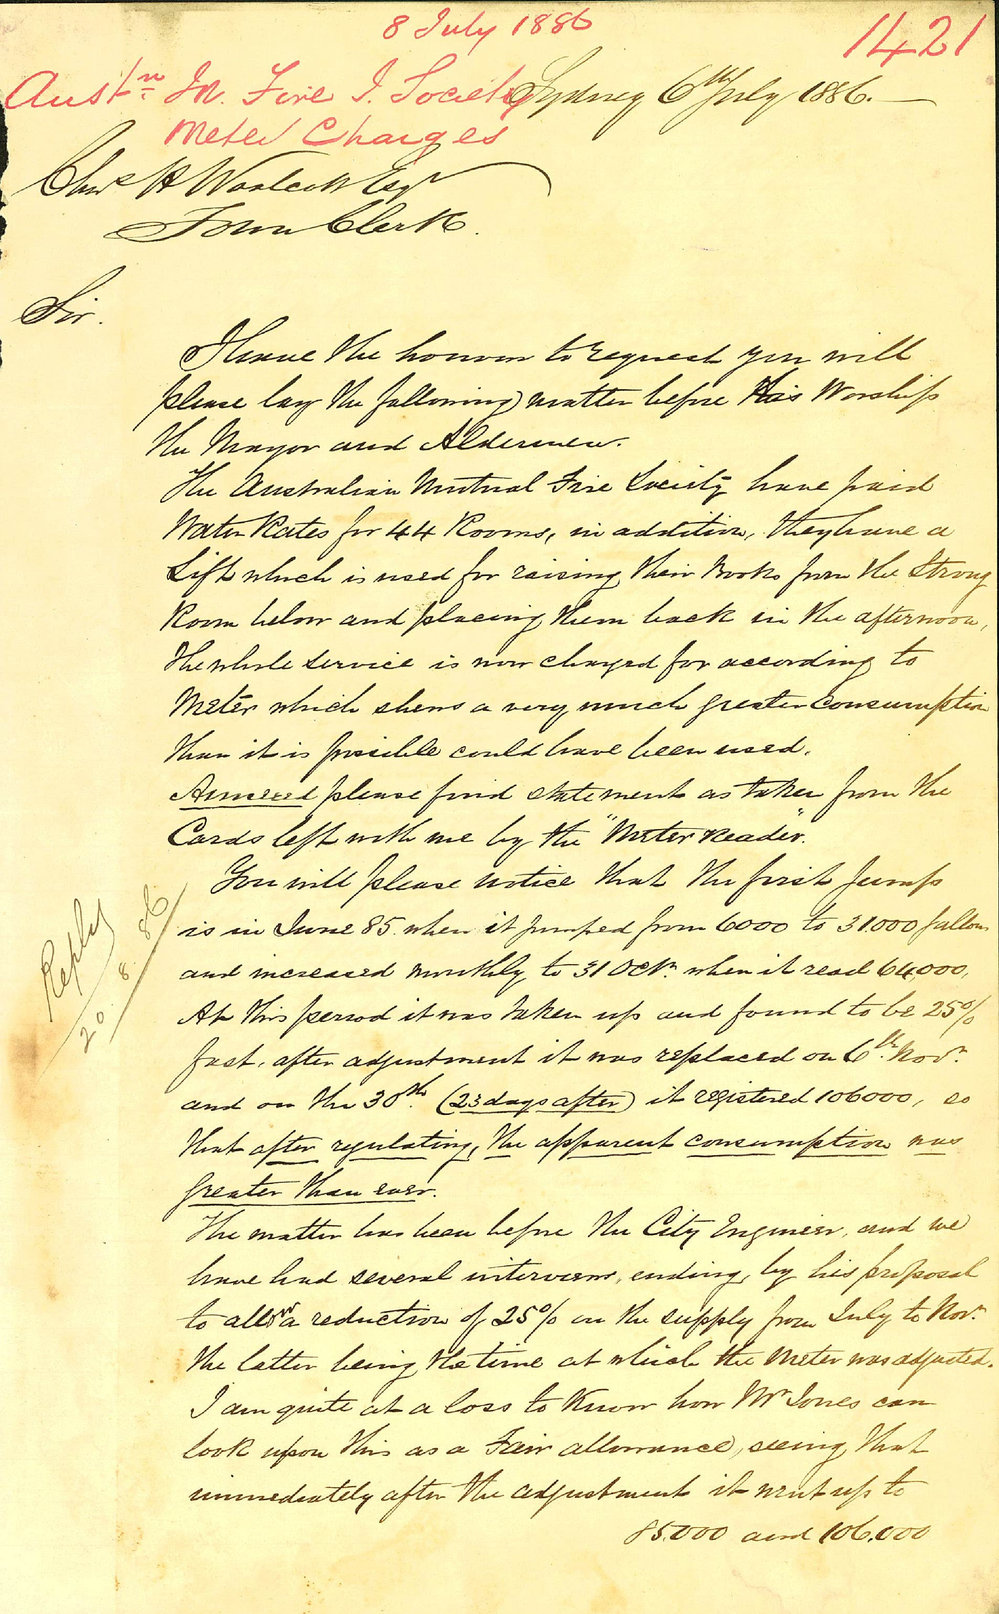 8 July 1886
1421
Austn. M. Fire I. Society
Sydney 6th July 1886.
Meter Charges
Chas H Woolcott Esqr
Town Clerk.
Sir.
I have the honour to request you will
please lay the following matter before His Worship
the Mayor and Aldermen.
The Australian Mutual Fire Society have paid
Water Rates for 44 Rooms, in addition, they have a
Lift which is used for raising their Books from the Strong
Room below and placing them back in the afternoon,
The whole service is now charged for according to
Meter which shews a very much greater consumption
than it is possible could have been used.
Annexed please find statement as taken from the
Cards left with me by the "Meter reader".
You will please notice that the first jump
is in June 85. when it jumped from 6000 to 31000 gallons
and increased monthly to 31 Octr. when it read 64,000,
At this period it was taken up and found to be 25%
fast, after adjustment it was replaced on 6th. Novr.
and on the 30th. (23 days after) it registered 106000, so
that after regulating, the apparent consumption was
greater than ever.
The matter has been before the City Engineer, and we
have had several interviews, ending, by his proposal
to allow a reduction of 25% on the supply from July to Novr.
the latter being the time at which the Meter was adjusted.
I am quite at a loss to know how Mr Jones can
look upon this as a Fair allowance, seeing that
immediately after the adjustment it went up to
85.000 and 106.000
Reply
20. 8. 86.